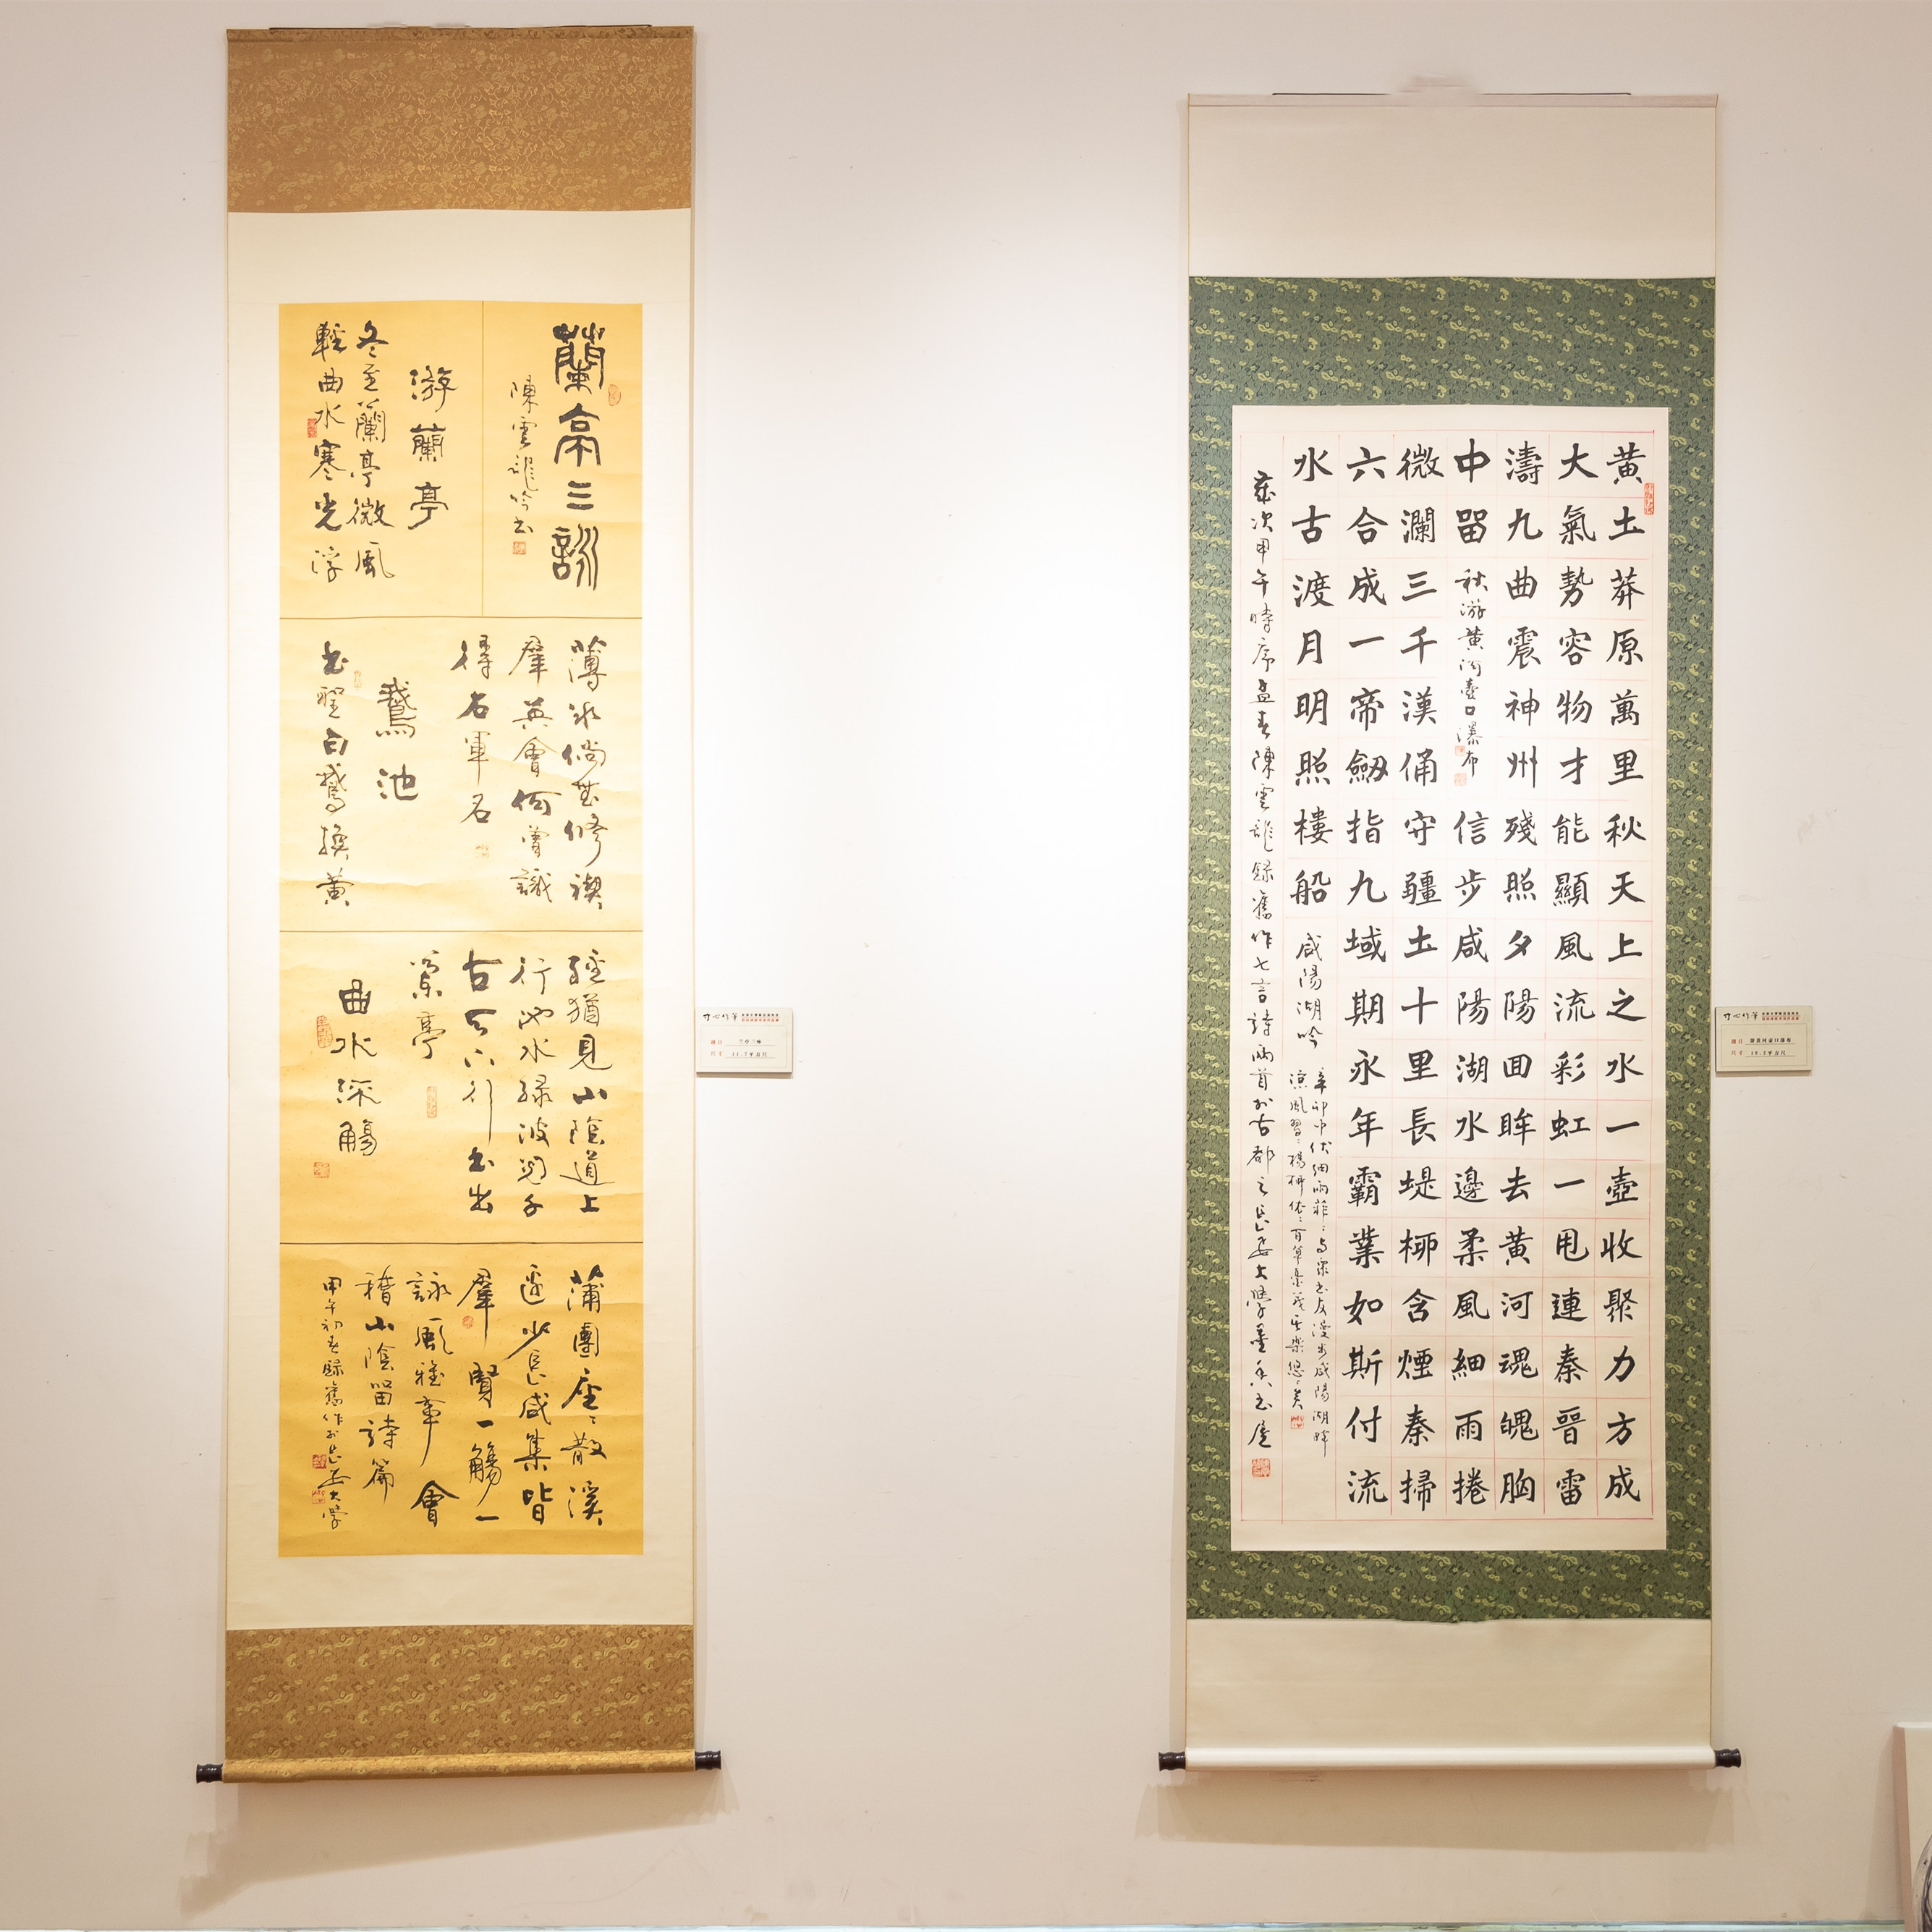 蘭亭三詠
陳雲龍吟書
游蘭亭
冬至蘭亭微風
輕曲水寒光浮
薄冰倘堪修禊
群英會何曾識
得右軍名
鵝池
書聖白鵝換黃
經猶見山陰道上
行池水綠波千
古行書出
蘭亭
曲水流觴
蒲團座座散溪
邊少長咸集皆
群賢一觴一
詠風雅事會
稽山陰留詩篇
甲午初春錄舊作於長安大學
寸心作筆
黃土莽原萬里秋天上之水一壺收聚力方成
大氣勢容物才能顯風流彩虹一甩連秦晉雷
濤九曲震神州殘照夕陽回眸去黃河魂魄胸
中留 秋游黃河壺口瀑布 信步咸陽湖水邊柔風細雨捲
微瀾三千漢俑守疆土十里長堤柳含煙秦掃
六合成一帝劍指九域期永年霸業如斯付流
水古渡月明照樓船 咸陽湖吟
辛卯中伏細雨菲菲與眾書友漫步咸陽湖畔
涼風習習楊柳依依百草豐茂其樂悠悠矣
歲次甲午時序孟春陳雲龍錄舊作七言詩兩首於古都之長安大學墨香書屋
寸心作筆